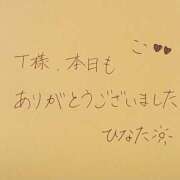 T様、本日も
ありがとうございました
ひなた